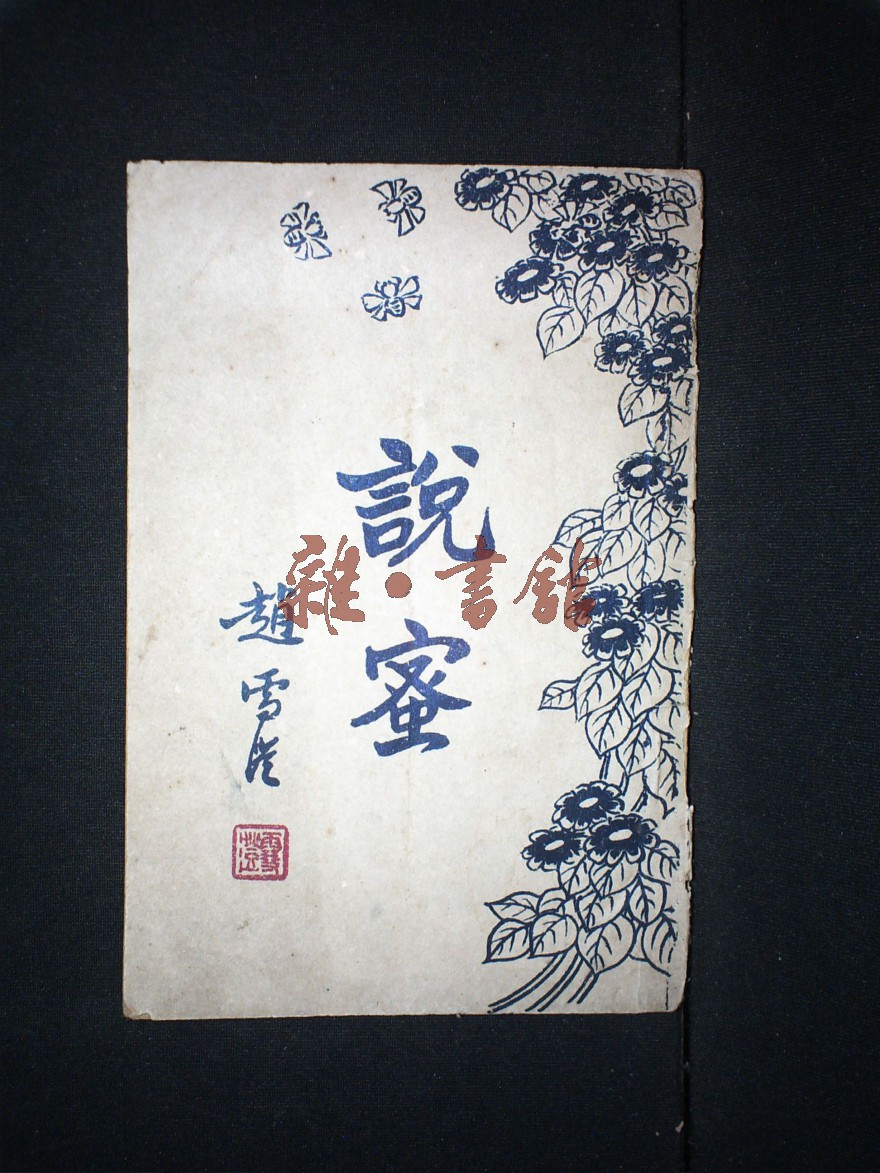 說蜜
趙雪
雜•書館